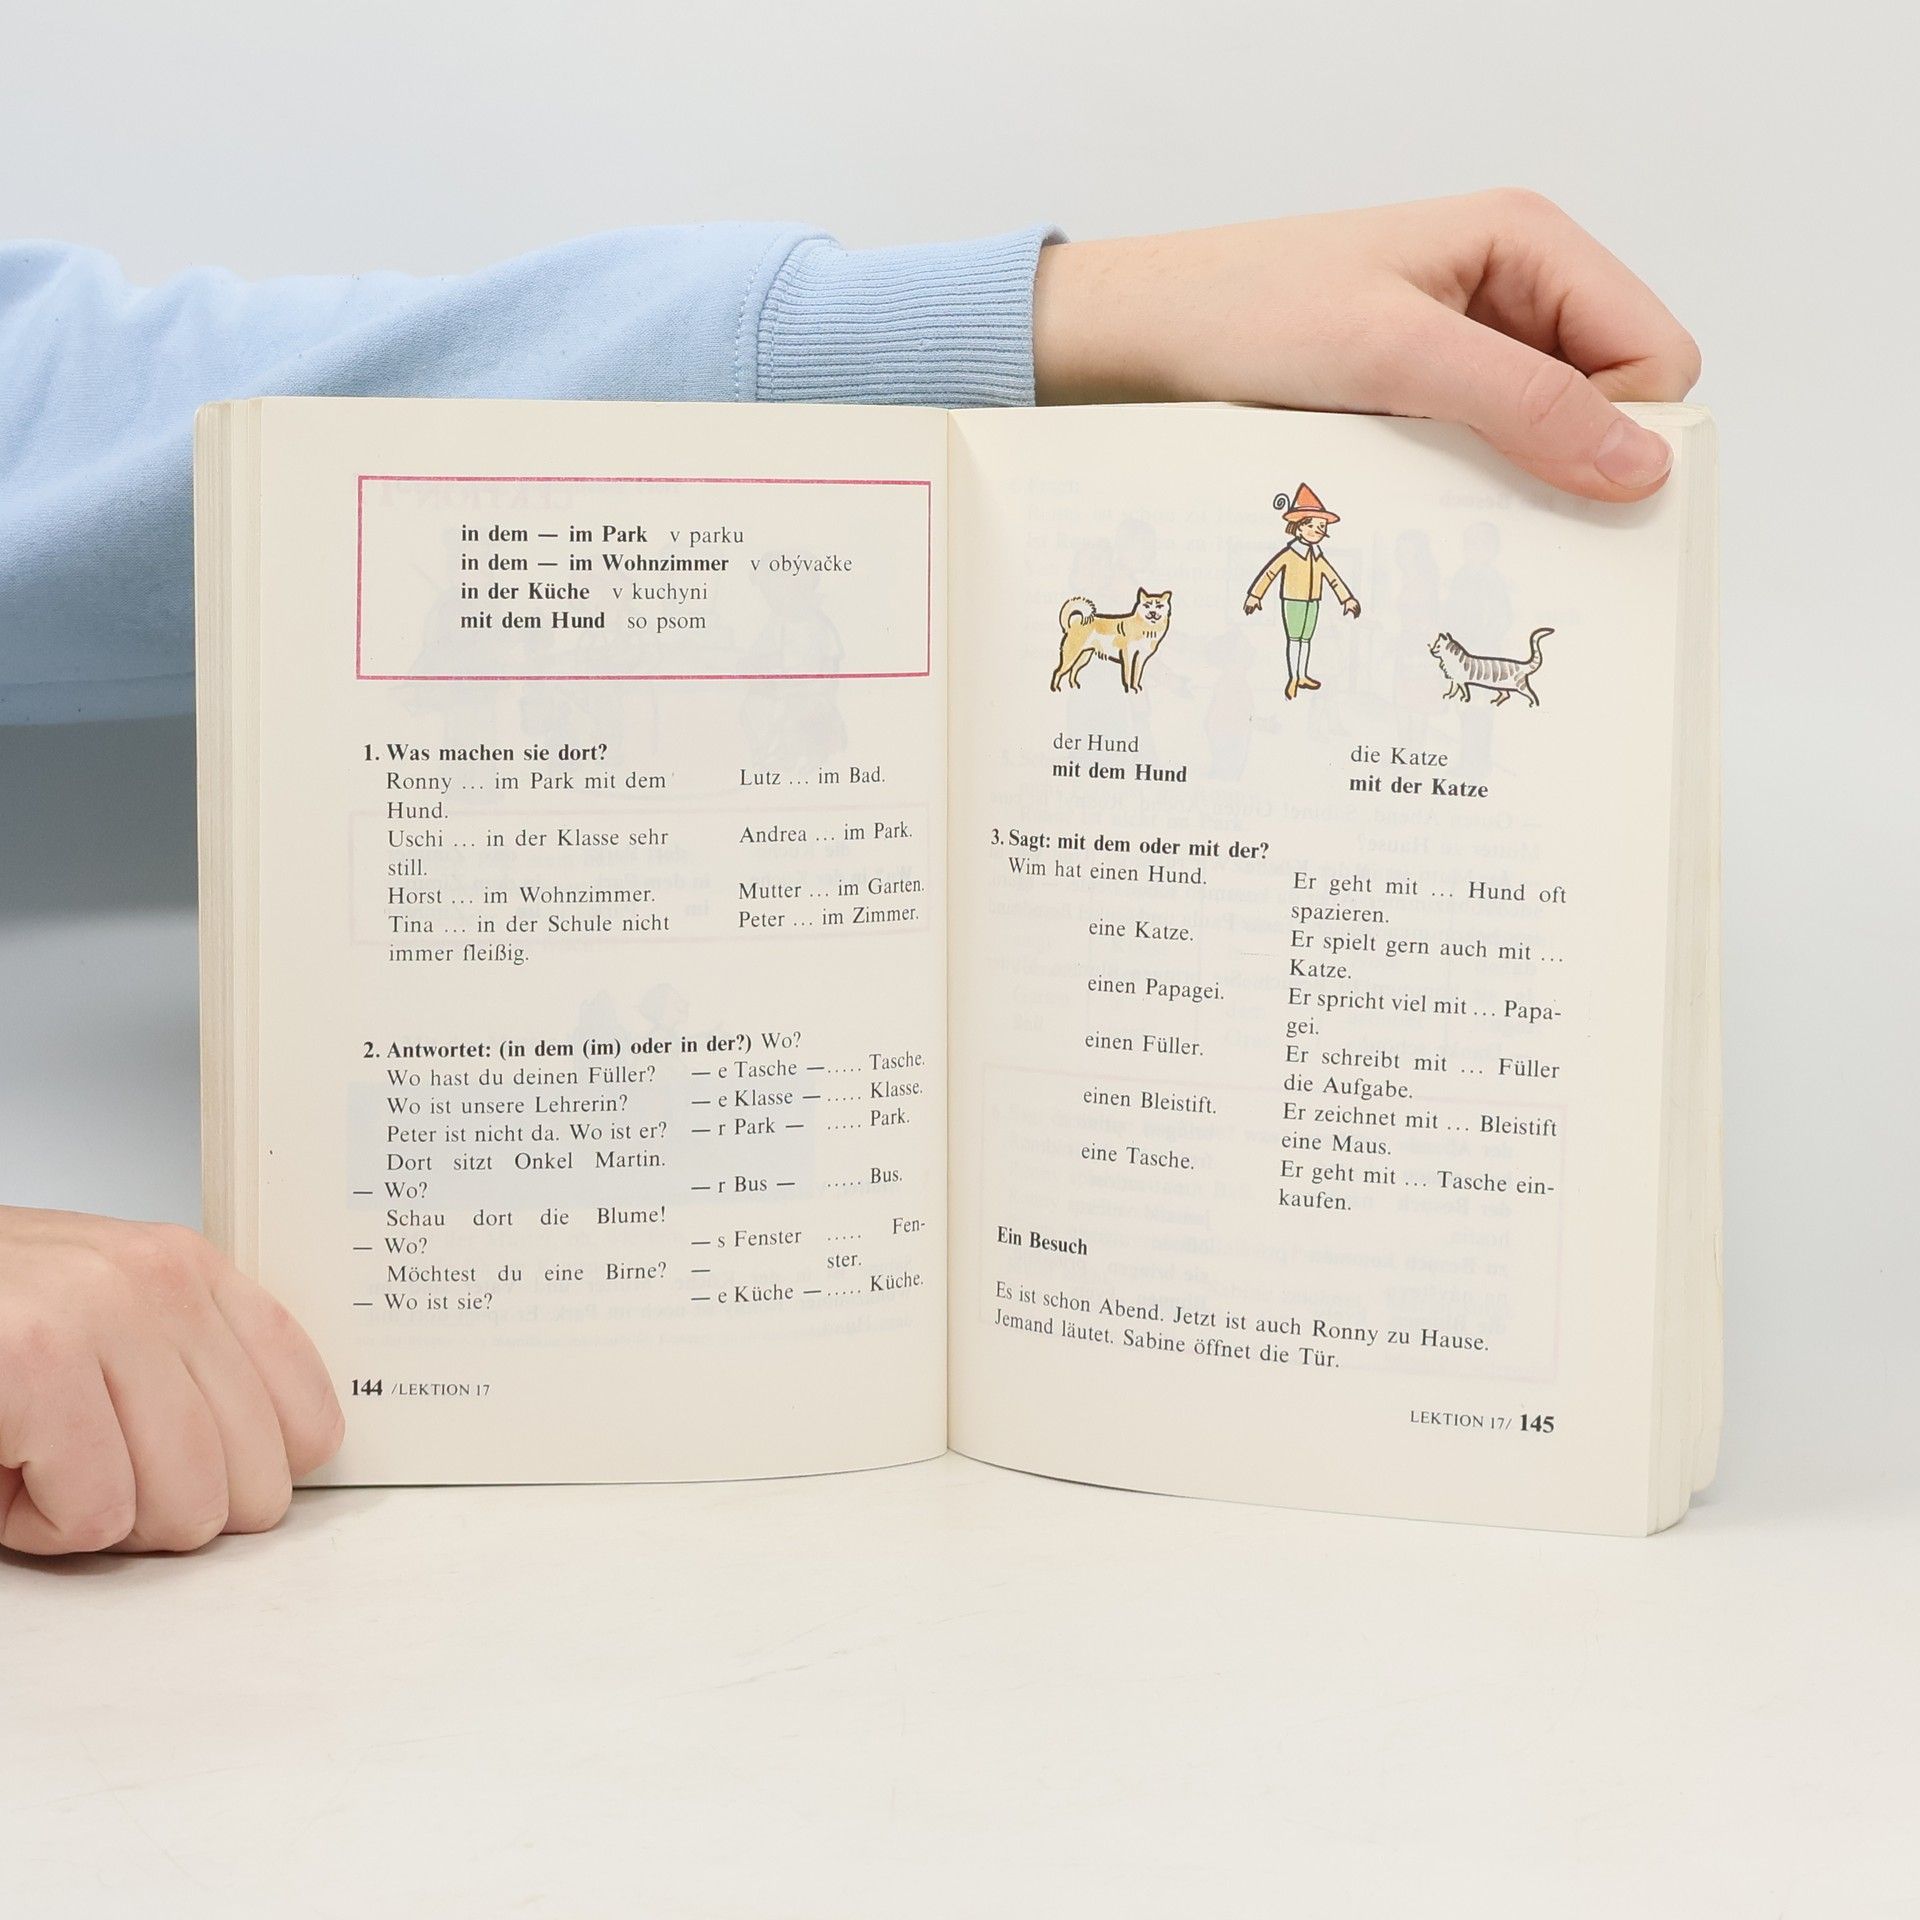 in dem — im Park v parku
in dem — im Wohnzimmer v obývačke
in der Küche v kuchyni
mit dem Hund so psom
1. Was machen sie dort?
Ronny ... im Park mit dem
Hund.
Uschi ... in der Klasse sehr
still.
Horst ... im Wohnzimmer.
Tina ... in der Schule nicht
immer fleißig.
Lutz ... im Bad.
Andrea ... im Park.
Mutter ... im Garten.
Peter ... im Zimmer.
2. Antwortet: (in dem (im) oder in der?) Wo?
Wo hast du deinen Füller? — e Tasche —..... Tasche.
Wo ist unsere Lehrerin? — e Klasse —..... Klasse.
Peter ist nicht da. Wo ist er? — r Park — ..... Park.
Dort sitzt Onkel Martin.
— Wo? — r Bus — ..... Bus.
Schau dort die Blume!
— Wo? — s Fenster ..... Fen-
Möchtest du eine Birne? — ster.
— Wo ist sie? — e Küche —..... Küche.
144 /LEKTION 17
der Hund
mit dem Hund
die Katze
mit der Katze
3. Sagt: mit dem oder mit der?
Wim hat einen Hund. Er geht mit ... Hund oft
spazieren.
eine Katze. Er spielt gern auch mit ...
Katze.
einen Papagei. Er spricht viel mit ... Papa-
gei.
einen Füller. Er schreibt mit ... Füller
die Aufgabe.
einen Bleistift. Er zeichnet mit ... Bleistift
eine Maus.
eine Tasche. Er geht mit ... Tasche ein-
kaufen.
Ein Besuch
Es ist schon Abend. Jetzt ist auch Ronny zu Hause.
Jemand läutet. Sabine öffnet die Tür.
LEKTION 17/ 145